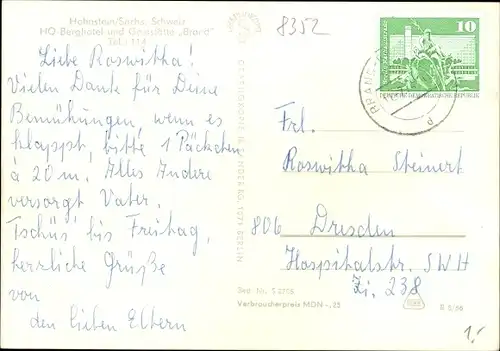 Hohnstein/Sächs. Schweiz
HO-Berghotel und Gaststätte „Brand"
Tel.: 114
8352
10
DEUTSCHE DEMOKRATISCHE REPUBLIK
Liebe Roswitha!
Vielen Dank für Deine
Bemühungen, wenn es
klappt, bitte 1 Päckchen
à 20 m. Alles Andere
versorgt Vater.
Tschüs bis Freitag,
herrliche Grüße
von
den lieben Eltern
Frl.
Roswitha Steinert
806 Dresden
Hospitalstr. SWH
Zi. 238
Verbraucherpreis MDN -,25
1,-